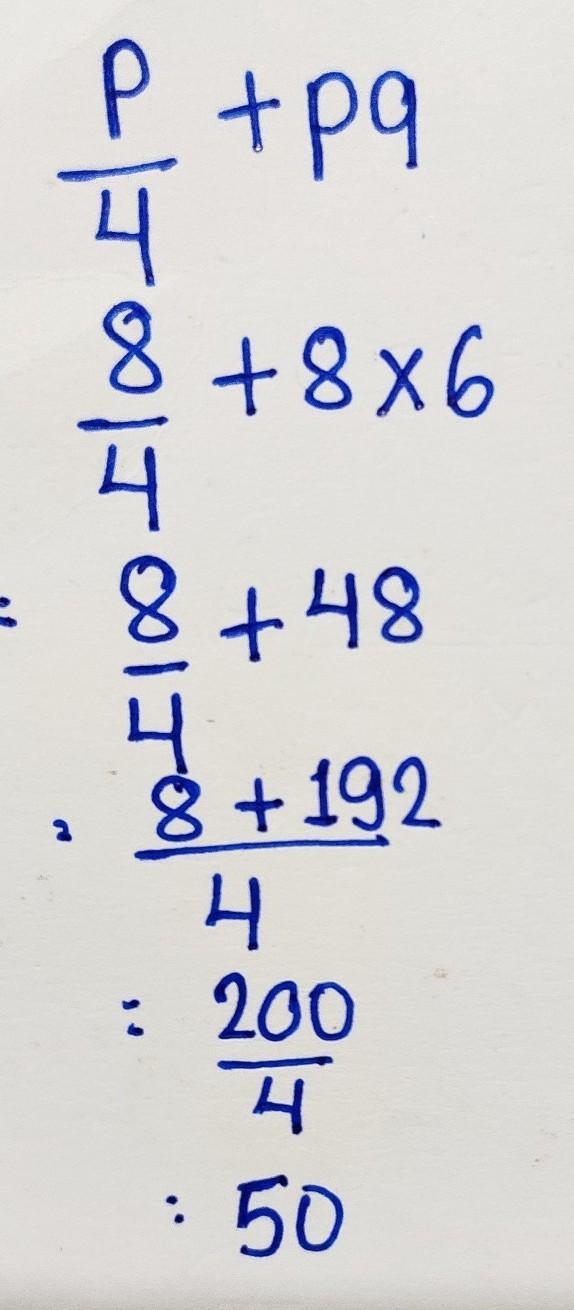 p/4 + pq
8/4 + 8 × 6
= 8/4 + 48
= 8 + 192/4
= 200/4
: 50